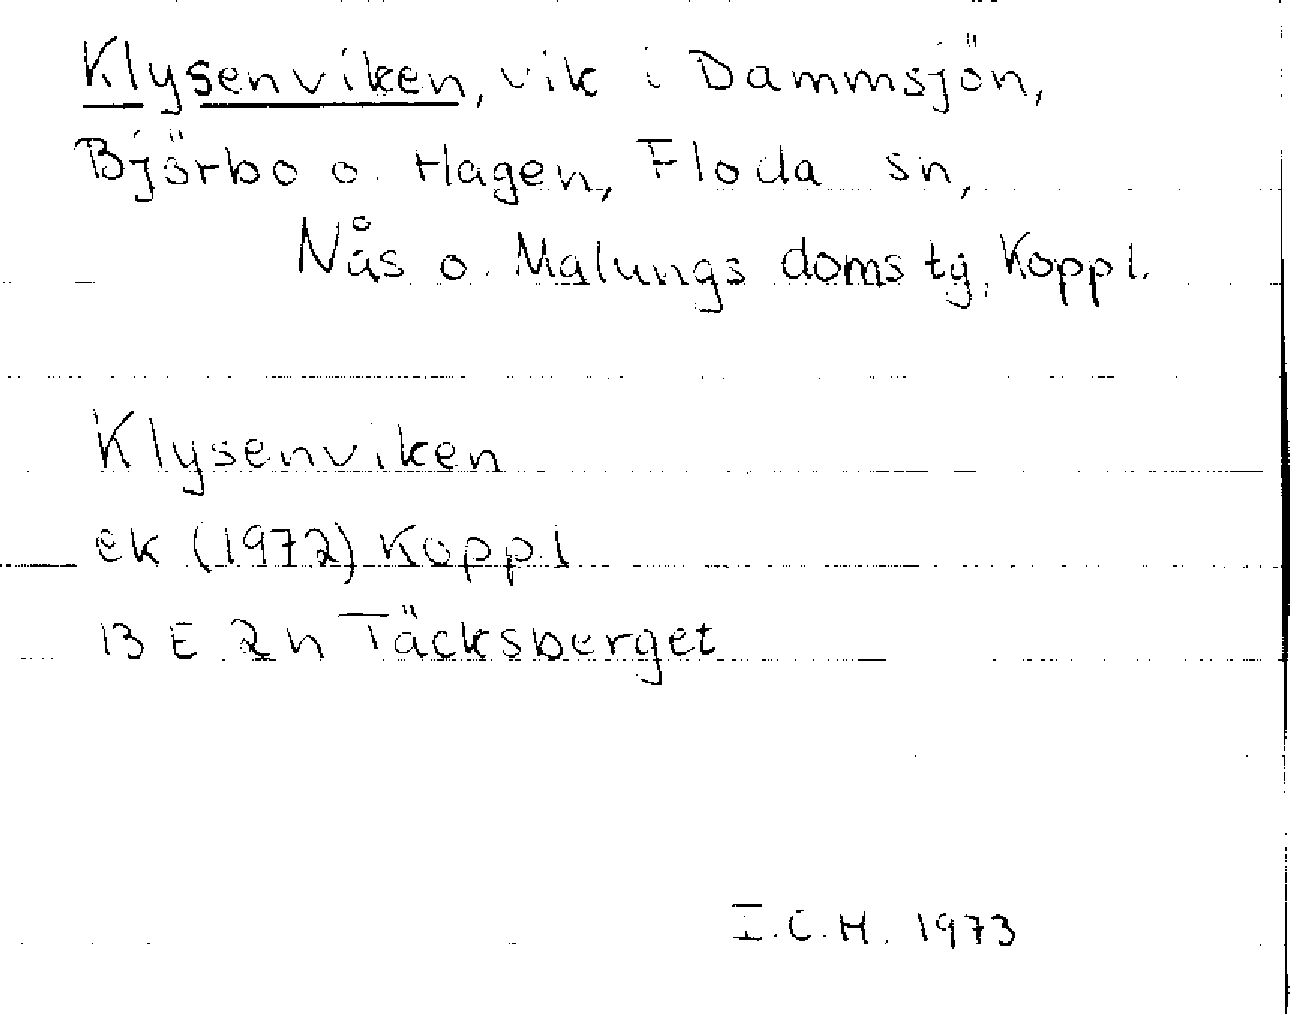 Klysenviken, vik i Dammsjön,
Björbo o. Hagen, Floda sn,
Nås o. Malungs domstg, Koppl.
Klysenviken
ek (1972) Koppl
13 E 2h Täcksberget
I.C.H. 1973